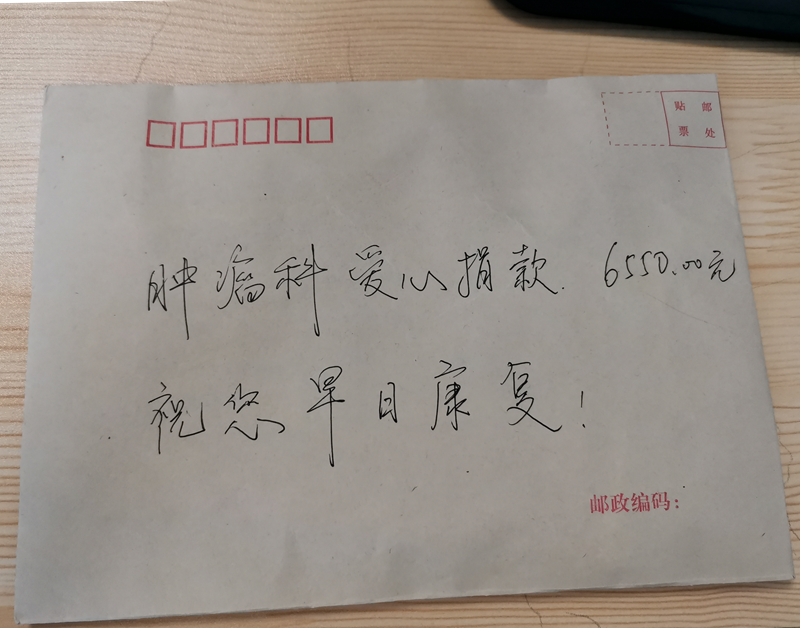 贴 邮
票 处
肿瘤科爱心捐款. 6550.00元
祝您早日康复!
邮政编码: